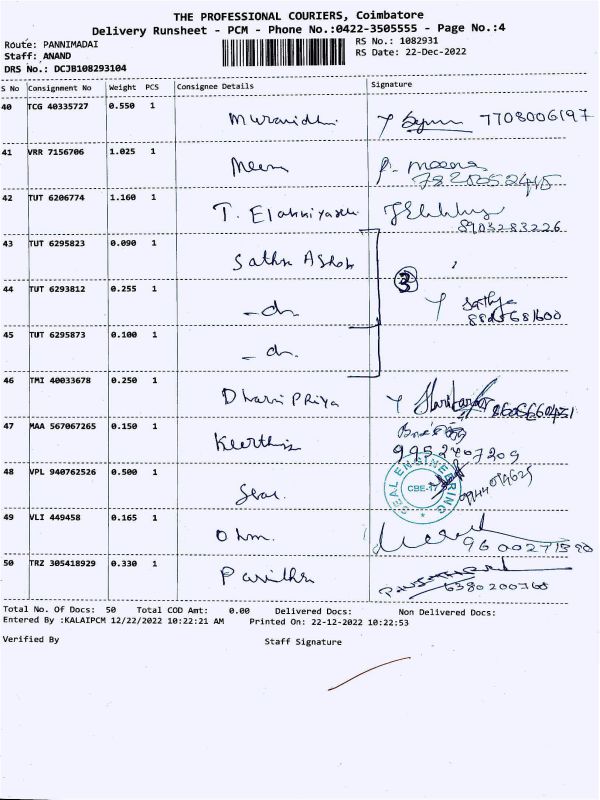 THE PROFESSIONAL COURIERS, Coimbatore
Delivery Runsheet - PCM - Phone No.:0422-3505555 - Page No.:4
Route: PANNIMADAI RS No.: 1082931
Staff: ANAND RS Date: 22-Dec-2022
DRS No.: DCJB108293104
S No Consignment No Weight PCS Consignee Details Signature
40 TCG 40335727 0.550 1 7708006197
41 VRR 7156706 1.025 1 Meena P. Meena
42 TUT 6206774 1.160 1 T.
8903283226
43 TUT 6295823 0.090 1 Sathya Ashok
3
44 TUT 6293812 0.255 1 - do Sathya
45 TUT 6295873 0.100 1 - do.
46 TMI 40033678 0.250 1 Dharni Priya
47 MAA 567067265 0.150 1
9952407209
48 VPL 940762526 0.500 1 Seal. SEAL ENGINEERING CBE-17
49 VLI 449458 0.165 1 Ohm.
9600271590
50 TRZ 305418929 0.330 1 Pavithra
6380200760
Total No. Of Docs: 50 Total COD Amt: 0.00 Delivered Docs: Non Delivered Docs:
Entered By :KALAIPCM 12/22/2022 10:22:21 AM Printed On: 22-12-2022 10:22:53
Verified By Staff Signature